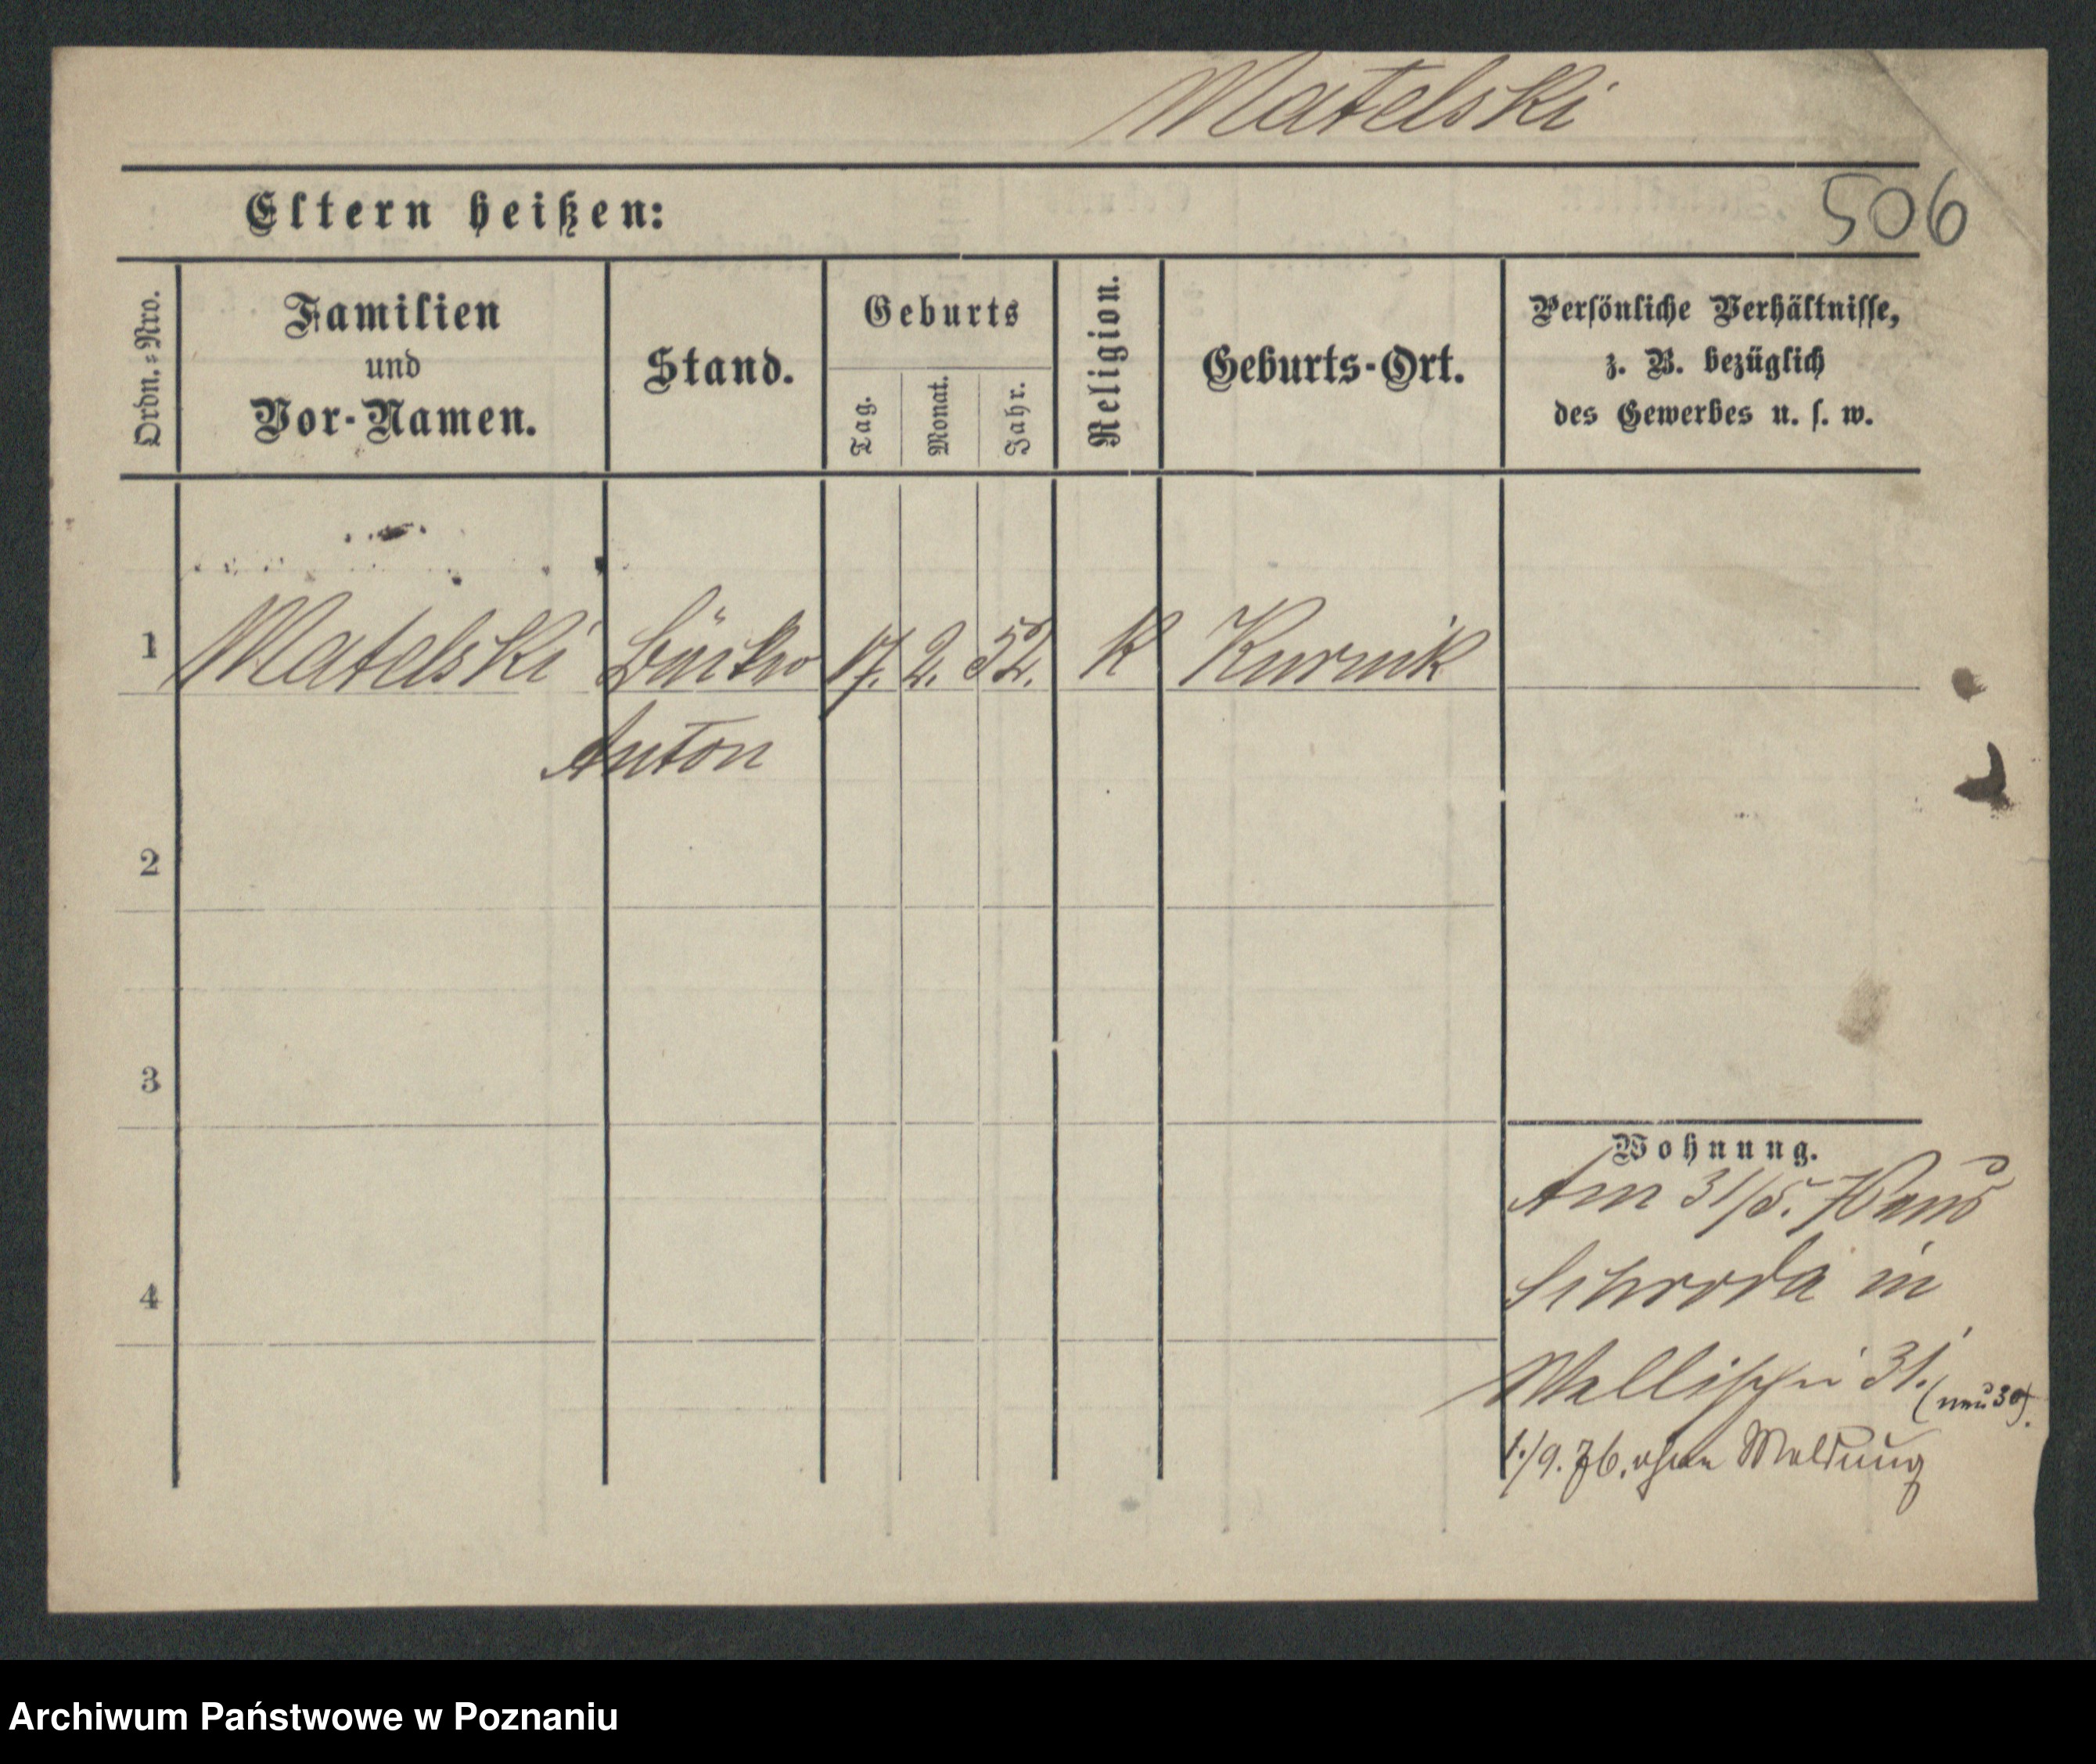 Matelski
506
Eltern heißen:
Ordn.=Nro.
Familien
und
Vor-Namen.
Stand.
Geburts
Tag.
Monat.
Jahr.
Religion.
Geburts-Ort.
Persönliche Verhältnisse,
z. B. bezüglich
des Gewerbes u. s. w.
1 Matelski 17. 2. 52. K Kurnik
Anton
2
3
4
Wohnung.
Am 31/5. von
Schroda in
Wallischei 31. (neu 30).
1./9. 76. ohne Meldung
Archiwum Państwowe w Poznaniu